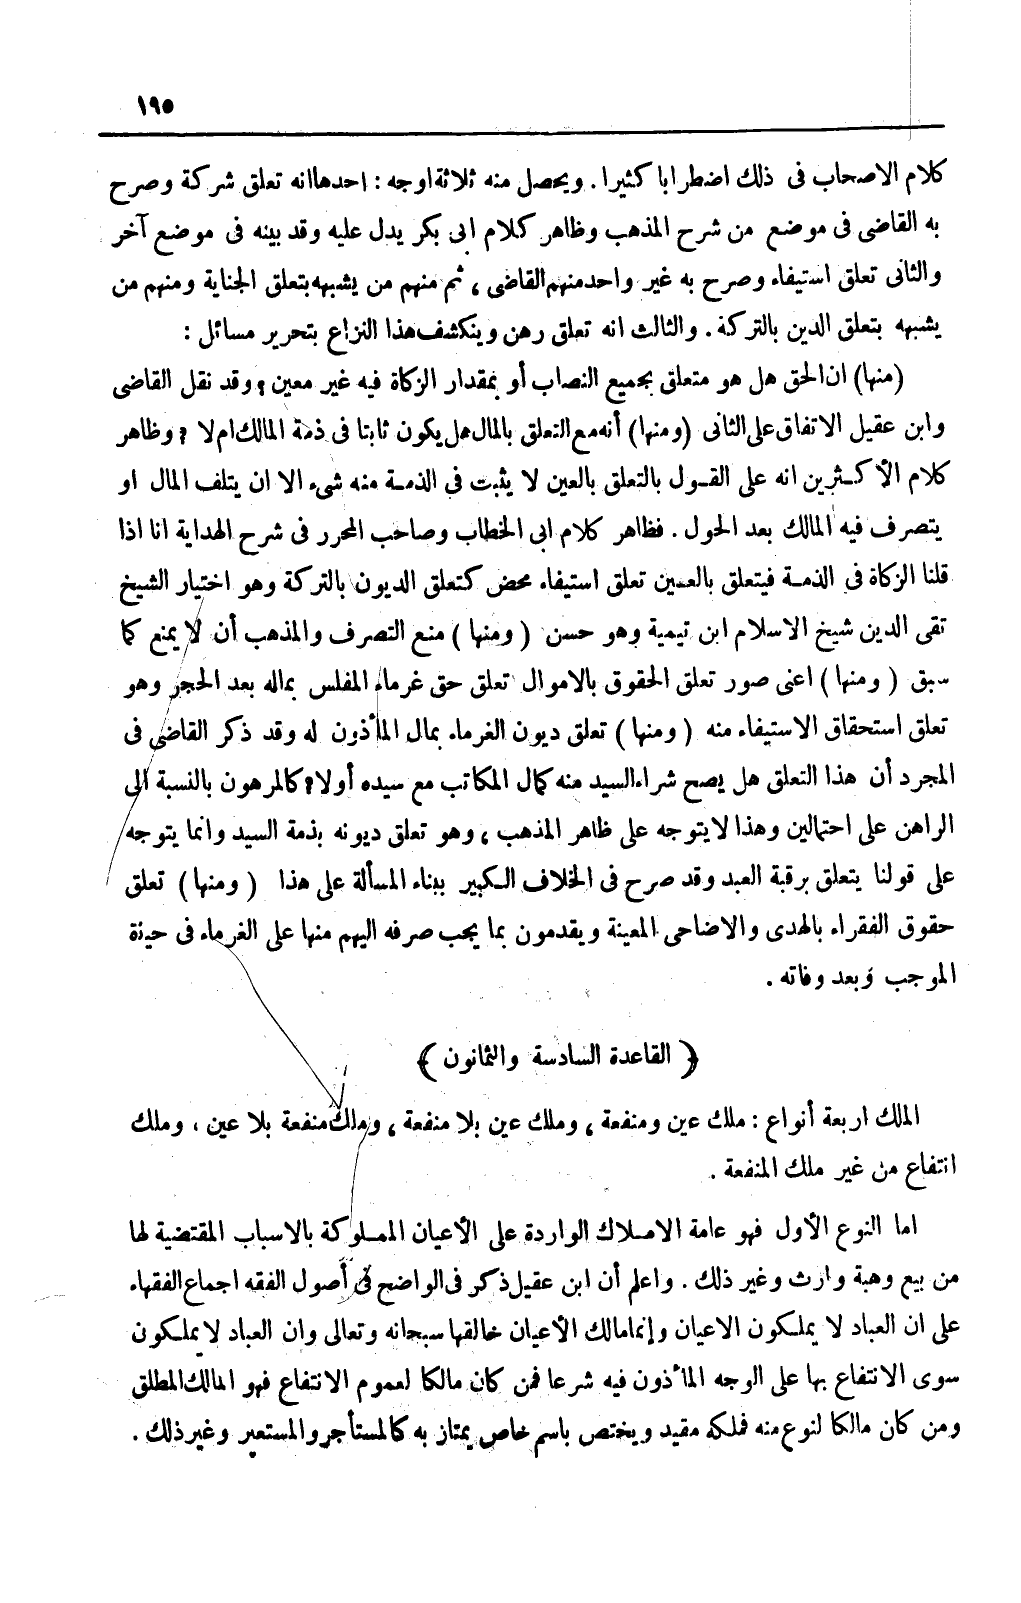 ١٩٥
كلام الاصحاب فى ذلك اضطرابا كثيرا . ويحصل منه ثلاثة اوجه : احدها انه تعلق شركة وصرح
به القاضى فى موضع من شرح المذهب وظاهر كلام ابى بكر يدل عليه وقد بينه فى موضع آخر
والثانى تعلق استيفاء وصرح به غير واحد منهم القاضى ، ثم منهم من يشبهه بتعلق الجناية ومنهم من
يشبهه بتعلق الدين بالتركة . والثالث انه تعلق رهن وينكشف هذا النزاع بتحرير مسائل :
(منها) ان الحق هل هو متعلق بجميع النصاب أو بمقدار الزكاة فيه غير معين ؟ وقد نقل القاضى
وابن عقيل الاتفاق على الثانى (ومنها) أنه مع التعلق بالمال هل يكون ثابتا فى ذمة المالك ام لا ؟ وظاهر
كلام الأكثرين انه على القول بالتعلق بالعين لا يثبت فى الذمة منه شىء الا ان يتلف المال او
يتصرف فيه المالك بعد الحول . فظاهر كلام ابى الخطاب وصاحب المحرر فى شرح الهداية انا اذا
قلنا الزكاة فى الذمة فيتعلق بالعين تعلق استيفاء محض كتعلق الديون بالتركة وهو اختيار الشيخ
تقى الدين شيخ الاسلام ابن تيمية وهو حسن ( ومنها ) منع التصرف والمذهب أن لا يمنع كما
سبق ( ومنها ) اعنى صور تعلق الحقوق بالاموال تعلق حق غرماء المفلس بماله بعد الحجر وهو
تعلق استحقاق الاستيفاء منه ( ومنها ) تعلق ديون الغرماء بمال المأذون له وقد ذكر القاضى فى
المجرد أن هذا التعلق هل يصح شراء السيد منه كمال المكاتب مع سيده أولا ؟ كالمرهون بالنسبة الى
الراهن على احتمالين وهذا لا يتوجه على ظاهر المذهب ، وهو تعلق ديونه بذمة السيد وانما يتوجه
على قولنا يتعلق برقبة العبد وقد صرح فى الخلاف الكبير ببناء المسألة على هذا ( ومنها ) تعلق
حقوق الفقراء بالهدى والاضاحى المعينة ويقدمون بما يجب صرفه اليهم منها على الغرماء فى حياة
الموجب وبعد وفاته .
﴿ القاعدة السادسة والثمانون ﴾
الملك اربعة أنواع : ملك عين ومنفعة ، وملك عين بلا منفعة ، وملك منفعة بلا عين ، وملك
انتفاع من غير ملك المنفعة .
اما النوع الأول فهو عامة الاملاك الواردة على الأعيان المملوكة بالاسباب المقتضية لها
من بيع وهبة وارث وغير ذلك . واعلم أن ابن عقيل ذكر فى الواضح فى أصول الفقه اجماع الفقهاء
على ان العباد لا يملكون الاعيان وإنما مالك الأعيان خالقها سبحانه وتعالى وان العباد لا يملكون
سوى الانتفاع بها على الوجه المأذون فيه شرعا فمن كان مالكا لعموم الانتفاع فهو المالك المطلق
ومن كان مالكا لنوع منه فملكه مقيد ويختص باسم خاص يمتاز به كالمستأجر والمستعير وغير ذلك .